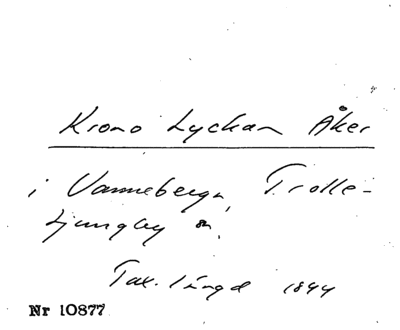 Krono Lyckan Åker
i Vanneberga, Trolle-
Ljungby sn.
Tax. längd 1844
Nr 10877